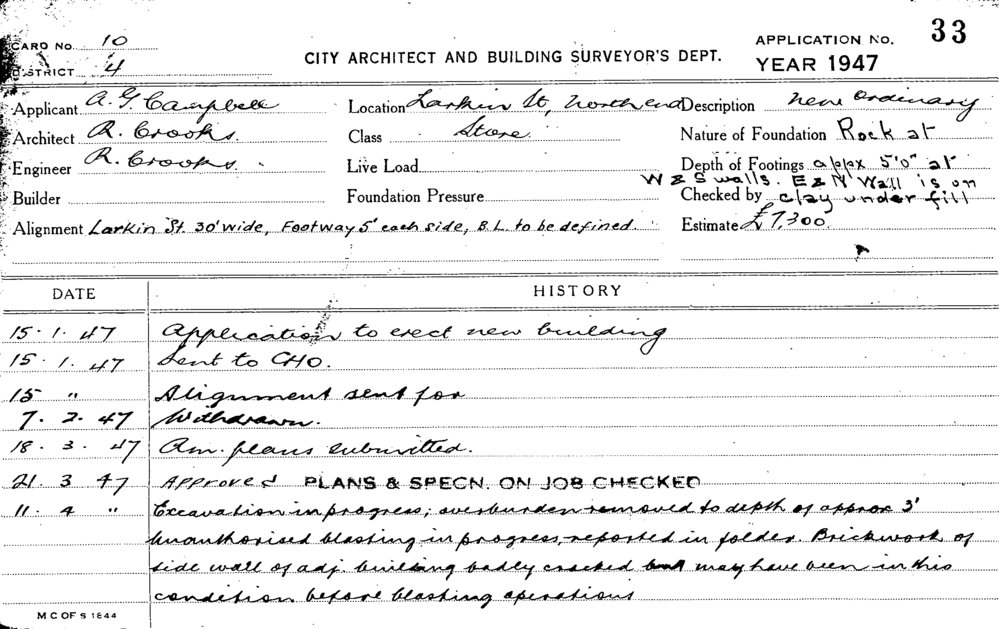 CARD No. 10
DISTRICT 4
CITY ARCHITECT AND BUILDING SURVEYOR'S DEPT.
APPLICATION No. 33
YEAR 1947
Applicant A. G. Campbell Location Larkin St, North end Description New Ordinary
Architect R. Crooks. Class Store Nature of Foundation Rock at
Engineer R. Crooks. Live Load Depth of Footings appx 5'0" at
W & S walls. E & N Wall is on
Builder Foundation Pressure Checked by clay under fill
Alignment Larkin St. 30' wide, Footway 5' each side, B.L. to be defined. Estimate £7,300.
DATE HISTORY
15. 1. 47 Application to erect new building
15. 1. 47 Sent to CHO.
15 " Alignment sent for
7. 2. 47 Withdrawn.
18. 3. 47 Am. plans submitted.
21. 3 47 Approved PLANS & SPECN. ON JOB CHECKED
11. 4 " Excavation in progress; overburden removed to depth of approx 3'
Unauthorised blasting in progress, reported in folder. Brickwork of
side wall of adj. building badly cracked but may have been in this
condition before blasting operations
M C OF S 1844